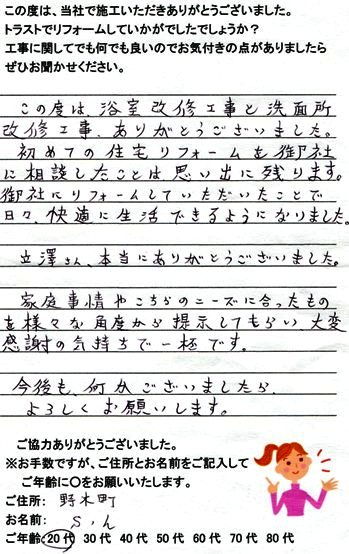 この度は、当社で施工いただきありがとうございました。
トラストでリフォームしていかがでしたでしょうか?
工事に関してでも何でも良いのでお気付きの点がありましたら
ぜひお聞かせください。
この度は、浴室改修工事と洗面所
改修工事、ありがとうございました。
初めての住宅リフォームを御社
に相談したことは思い出に残ります。
御社にリフォームしていただいたことで
日々、快適に生活できるようになりました。
立澤さん、本当にありがとうございました。
家庭事情やこちらのニーズに合ったもの
を様々な角度から提示してもらい、大変
感謝の気持ちで一杯です。
今後も、何かございましたら、
よろしくお願いします。
ご協力ありがとうございました。
※お手数ですが、ご住所とお名前をご記入して
ご年齢に〇をお願いいたします。
ご住所: 野木町
お名前: S.ん
ご年齢:20代 30代 40代 50代 60代 70代 80代